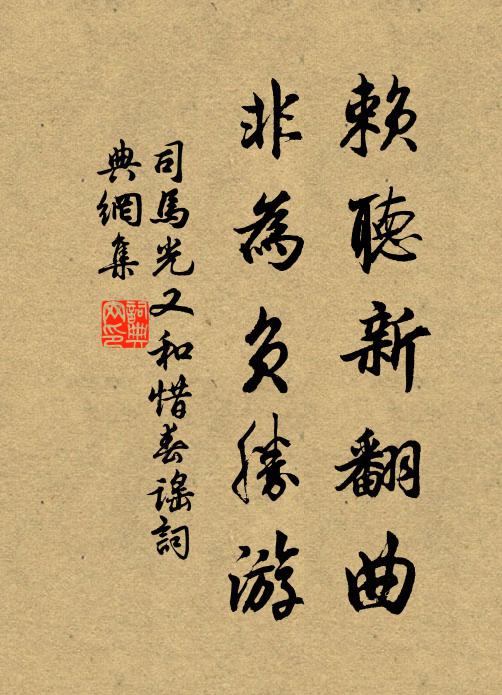 賴聽新翻曲
非為負勝游
司馬光又和惜春謠詞
典網集
詞典网印